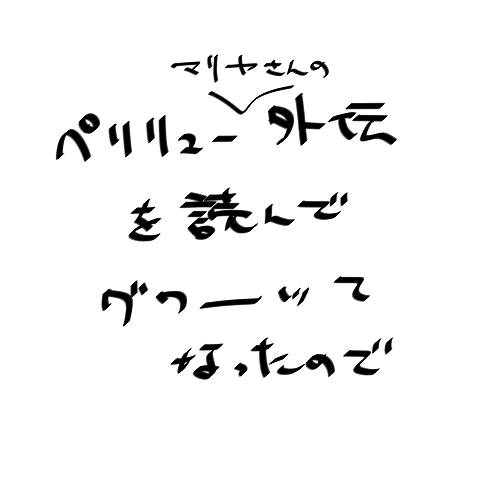 マリヤさんの
ペリリュー外伝
を読んで
グワーッて
なったので